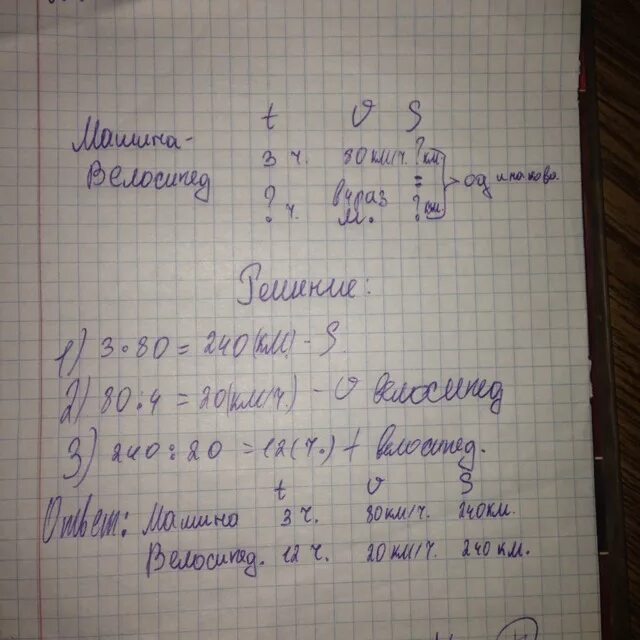 t v S
Машина- 3 ч. 80 км/ч. ? км
= одинаково.
Велосипед ? ч. в 4 раз м. ? км
Решение:
1) 3·80 = 240(км) - S.
2) 80:4 = 20(км/ч) - v велосипед
3) 240:20 = 12(ч.) t велосипед.
t v S
Ответ: Машина 3 ч. 80 км/ч. 240 км.
Велосипед. 12 ч. 20 км/ч. 240 км.